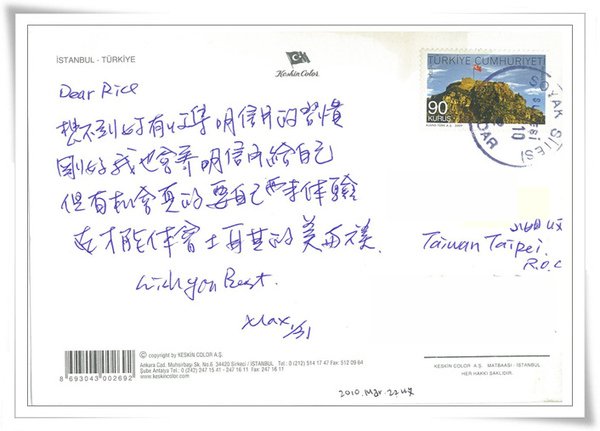 İSTANBUL - TÜRKİYE
Keskin Color
TÜRKİYE CUMHURİYETİ
90
KURUŞ
SOYAK SİTESİ
DAR
10
Dear Rice
想不到你有收集明信片的習慣
剛好我也會寄明信片給自己
但有机會真的要自己來体驗
才能体會土耳其的美
Taiwan Taipei.
R.O.C
Wish you Best.
Max 1/31
© copyright by KESKİN COLOR A.Ş.
Ankara Cad. Muhsirbaşı Sk. No.6 34420 Sirkeci / İSTANBUL Tel : 0 (212) 514 17 47 Fax: 512 09 64
Şube Antalya Tel : 0 (242) 247 15 41 - 247 16 11 Fax: 247 16 11
www.keskincolor.com
8 693043 002692
KESKİN COLOR A.Ş. MATBAASI- İSTANBUL
HER HAKKI SAKLIDIR.
2010. Mar. 22